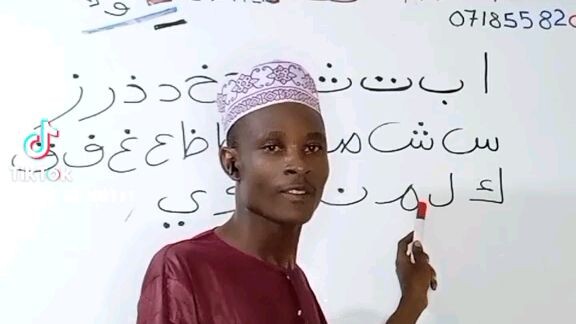 07185582
ا ب ت ث خ د ذ ر ز
س ش ص ظ ع غ ف ق
ك ل م ن و ي
TikTok